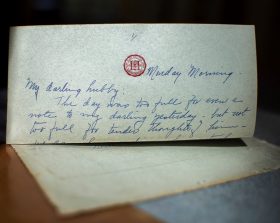 Monday Morning
My darling hubby.
The day was too full for even a
note to my darling yesterday, but not
too full for tender thoughts,